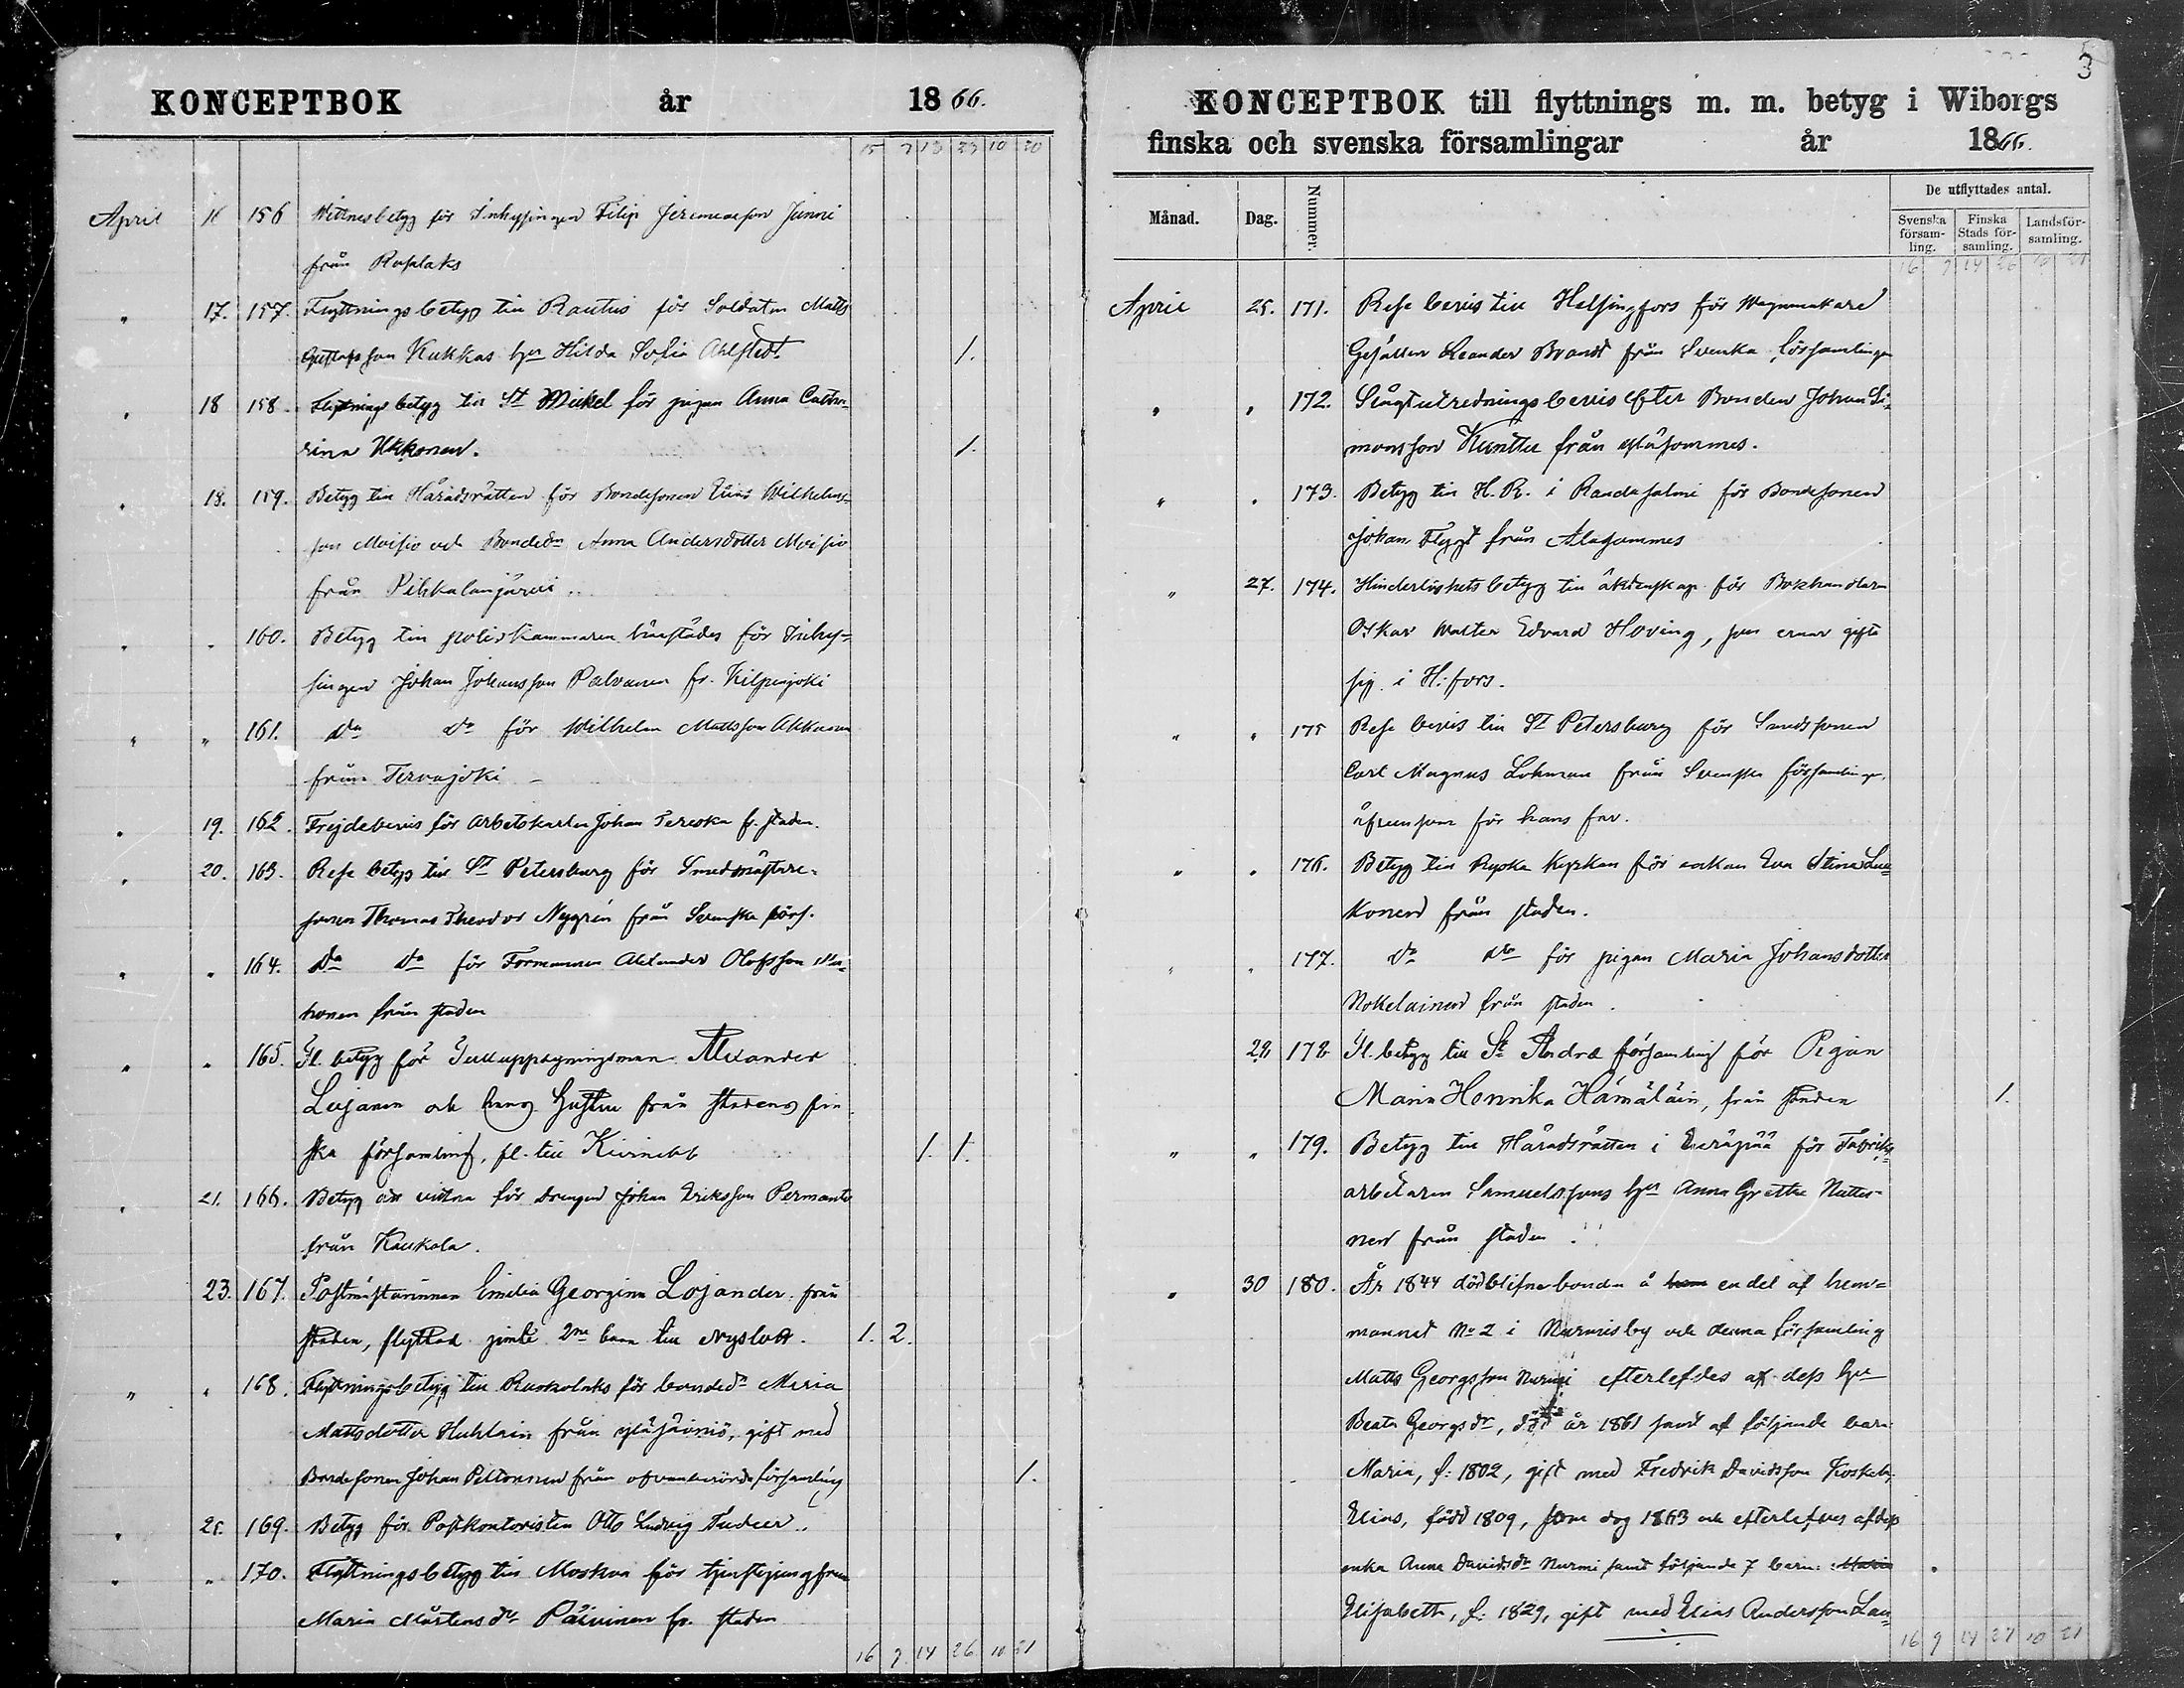 KONCEPTBOK år 1866.
15 7 13 23 10 20
April 16 156 Wittnesbetyg för Inhysingen Filip Jeremiasson Junni
från
" 17. 157. Flyttningsbetyg till Rautus för Soldaten Matts
Gustafsson Kukkas h:u Hilda Sofia Ahlstedt 1.
" 18 158. Flyttningsbetyg till St Mickel för pigan Anna Catha-
rina Ukkonen. 1.
" 18. 159. Betyg till Häradsrätten för Bondesonen Elias Wilhelms-
son Moisio och Bondedr Anna Andersdotter Moisio
från Pihkalanjärvi
" " 160. Betyg till poliskammaren härstädes för Inhy-
singen Johan Johansson Palvanen fr. Kilpenjoki
" " 161. do do för Wilhelm Mattsson
från Tervajoki –
" 19. 162. Frejdebevis för arbetskarlen Johan Tereska fr. staden.
" 20. 163. Rese betyg till St Petersburg för Smedmästare-
sonen Thomas Theodor Nygrén från Svenska förs.
" " 164. do do för Formannen Alexander Olofsson
honen från staden
" " 165. Fl. betyg för Tulluppsyningsman Alexander
Leijanen och hans hustru från stadens fin
ska församling, fl. till Kivinebb 1. 1.
" 21. 166. Betyg att vittna för drengen Johan Eriksson Permanto
från Kaukola.
23. 167. Postmästarinnan Emilia Georgina Lojander från
staden, flyttad jemte 2ne barn till Nyslott. 1. 2.
" " 168. Flyttningsbetyg till Ruskolaks för bondedr Maria
Mattsdotter Huhtain från gift med
Bondesonen Johan Peltonen från ofvanberörda församling 1.
" 25. 169. Betyg för Postkontoristen Otto Ludvig Tudeer.
" " 170. Flyttningsbetyg till Moskva för
Maria Mårtensdr Päivinen fr. staden
16 9 14 26 10 21
3
KONCEPTBOK till flyttnings m. m. betyg i Wiborgs
finska och svenska församlingar år 1866.
Månad. Dag. Nummer. De utflyttades antal.
Svenska försam-ling. Finska Stads för-samling. Landsför-samling.
16 9 14 26 10 21
April 25. 171. Rese bevis till Helsingfors för Wagnmakare
Gesällen Leander Brandt från Svenska församlingen
" " 172. Slägtutredningsbevis efter Bonden Johan Si-
monsson från Yläsommes.
" " 173. Betyg till H. R. i Randasalmi för Bondesonen
Johan Flygt från Alasommes
" 27. 174. Hinderlöshetsbetyg till äktenskap för Bokhandlaren
Oskar Walter Edvard Hoving, som ernar gifta
sig i H:fors.
" " 175 Rese bevis till St Petersburg för Smedssonen
Carl Magnus Lohman från Svenska församlingen,
äfvensom för hans far.
" " 176. Betyg till Ryska Kyrkan för enkan Eva Stina Luu-
konen från staden.
" " 177. do do för pigan Maria Johansdotter
Nokelainen från staden.
28 178 Fl. betyg till St Andreæ församling för Pigan
Maria Hennika Hämäläin, från staden 1.
" " 179. Betyg till Häradsrätten i Euräpää för Fabriks-
arbetaren Samuelssons h:u Anna Gretha
nen från staden
" 30 180. År 1844 död blifne bonden å hem en del af hem-
mannet No 2 i Nurmisby och denna församling
Matts Georgsson Nurmi efterlefdes af dess h:u
Beata Georgsdr, död år 1861 samt af följande barn:
Maria, f: 1802, gift med Fredrik Davidsson
Elias, född 1809, som dog 1863 och efterlefves af dess
enka Anna Davidsdr Nurmi samt följande 7 barn: Maria
Elisabeth, f: 1829, gift med Elias Andersson Lau-
16 9 14 27 10 21